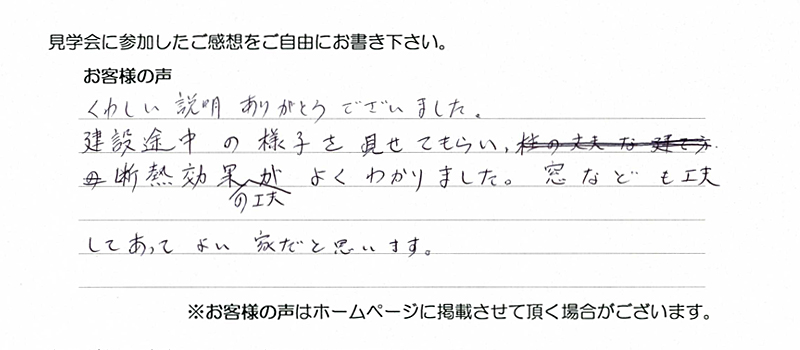 見学会に参加したご感想をご自由にお書き下さい。
お客様の声
くわしい説明ありがとうございました。
建設途中の様子を見せてもらい、柱の丈夫な建て方
の断熱効果がよくわかりました。窓なども工夫
の工夫
してあってよい家だと思います。
※お客様の声はホームページに掲載させて頂く場合がございます。